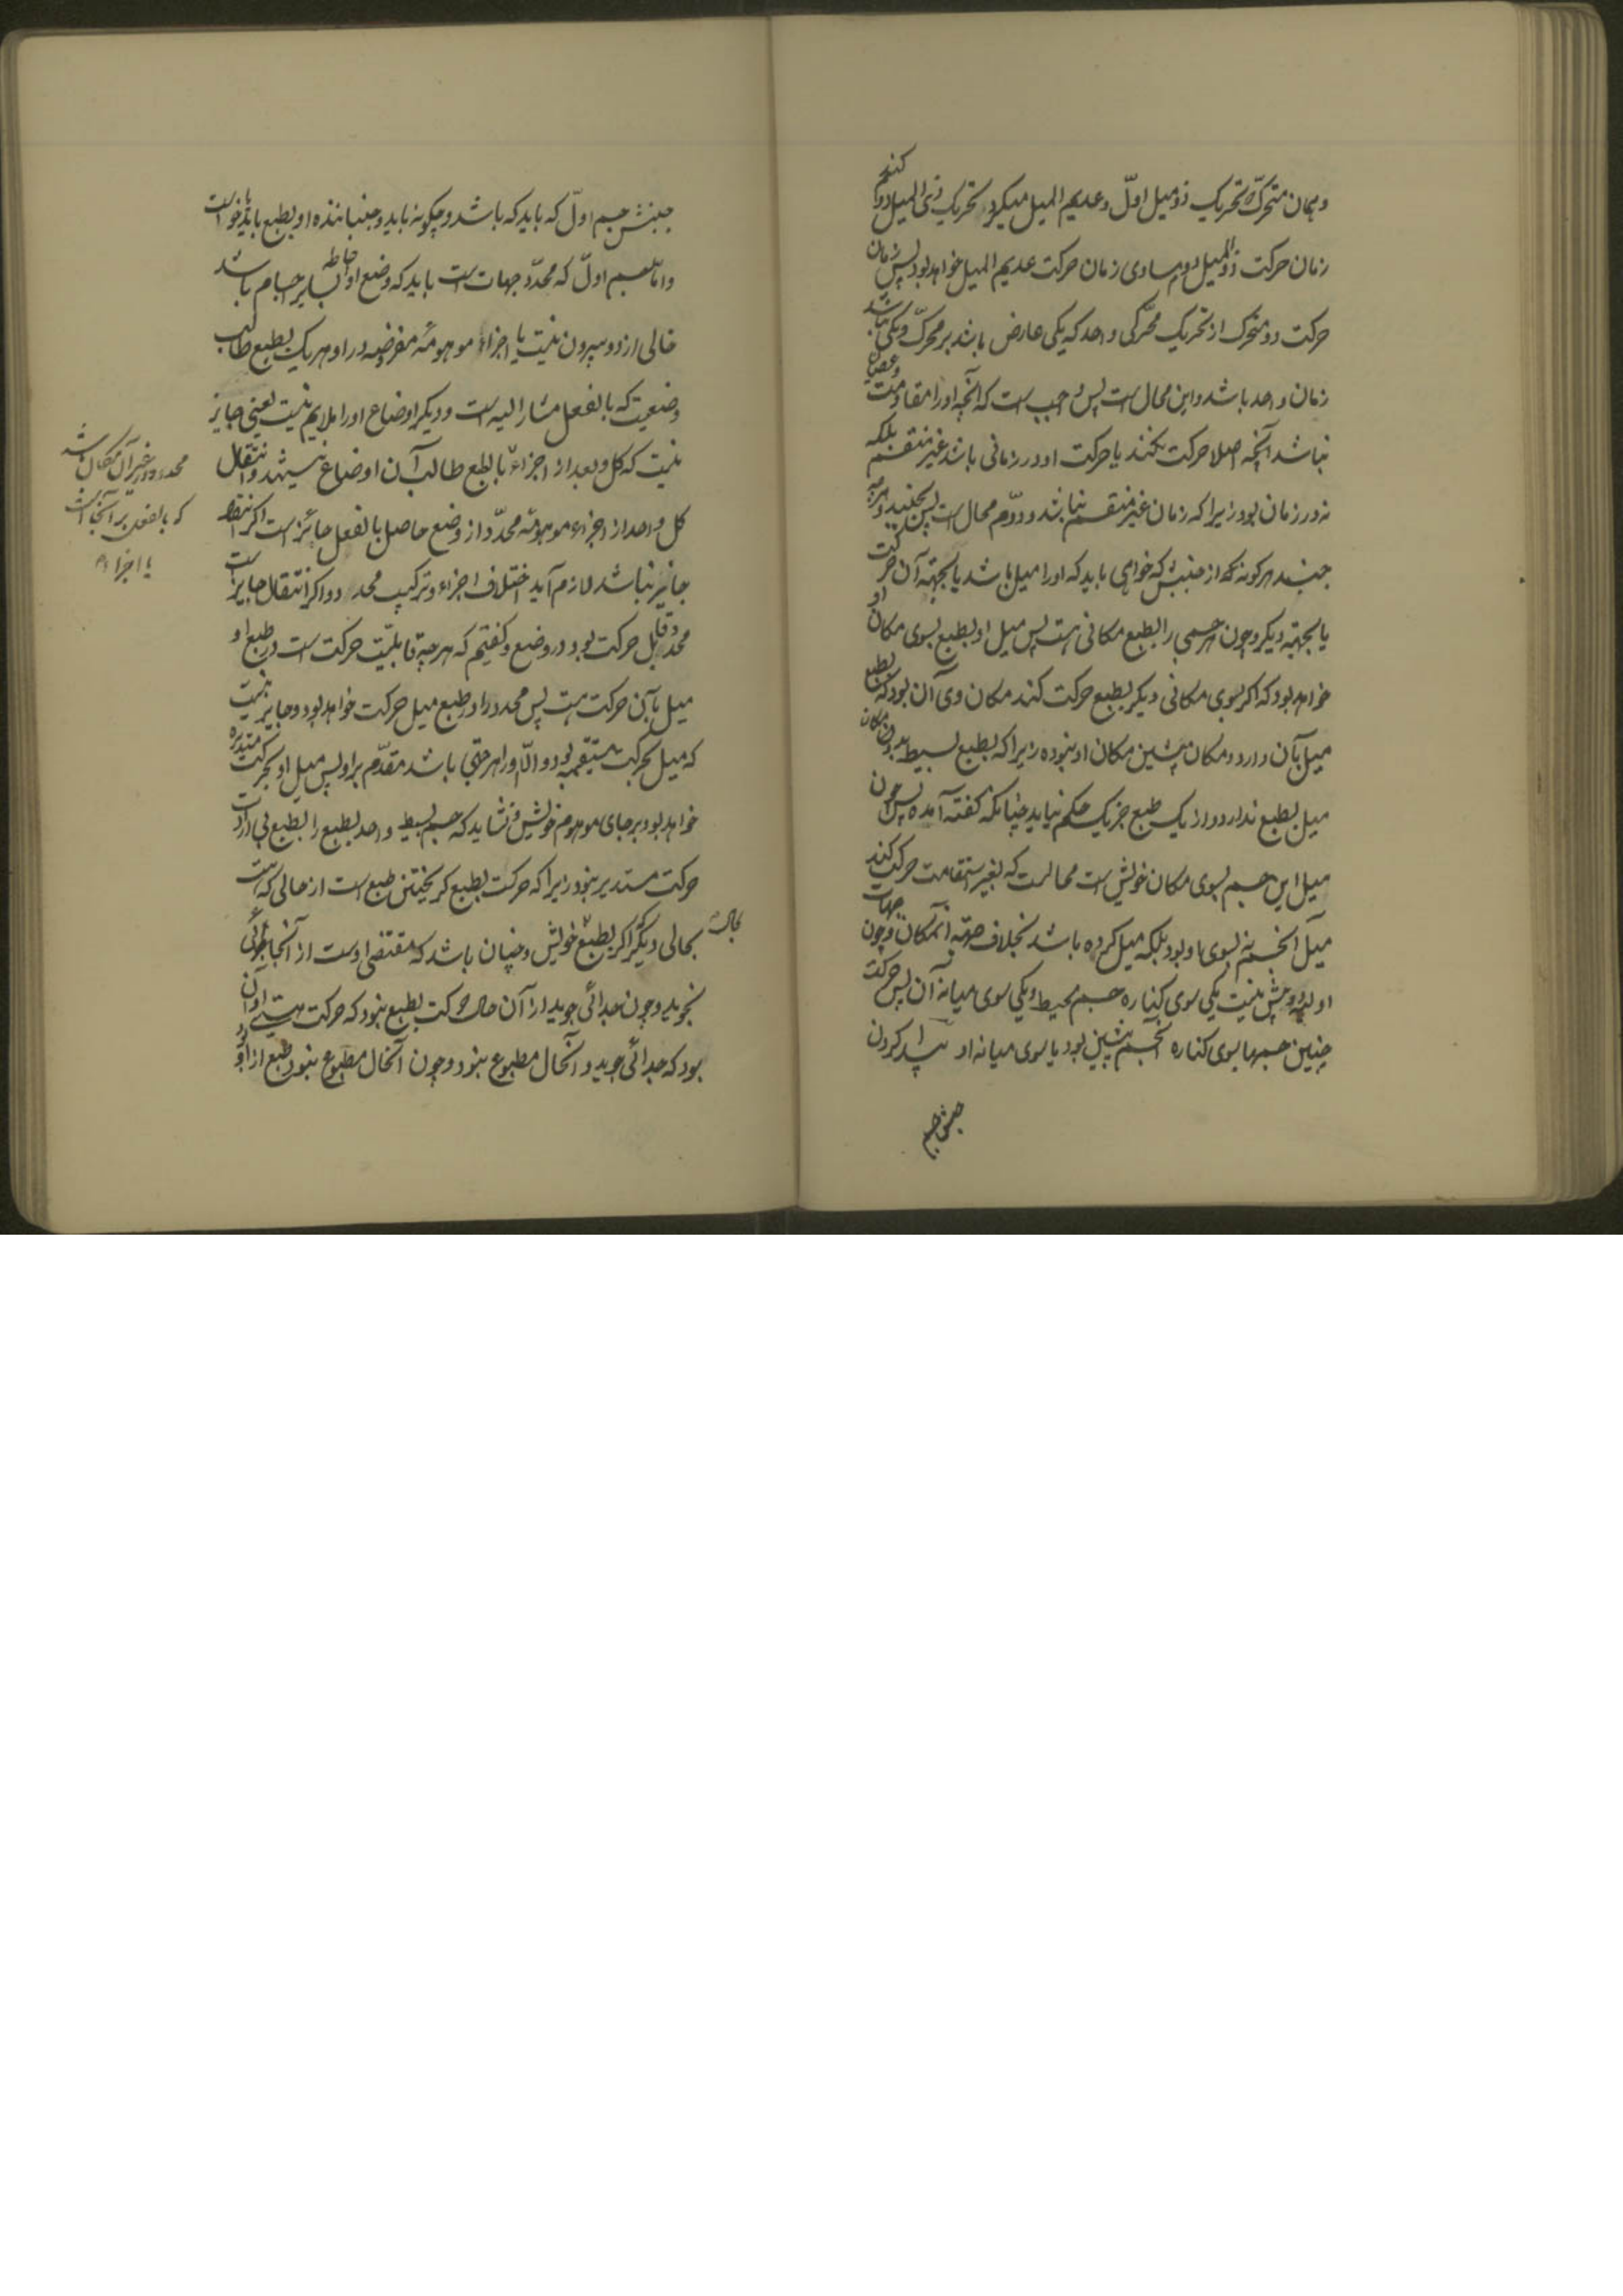 و همان متحرک تحریک ذو میل اول و عدیم المیل میکرد تحریک ذی المیل دوم کند
زمان حرکت ذو المیل دوم مساوی زمان حرکت عدیم المیل خواهد بود پس زمان
حرکت دو متحرک از تحریک محرکی واحد که یکی عارض باشد بر محرک و یکی نباشد
زمان واحد باشد و این محال است پس واجب است که آنچه او را مقاومت و عصیان
نباشد آنچه اصلا حرکت نکند یا حرکت او در زمانی باشد غیر منقسم بلکه
نه در زمان بود زیرا که زمان غیر منقسم نباشد و دوم محال است پس نجنبد و هرچه
جنبد هر گونه که از جنبش که خواهی باید که او را میل باشد یا بجهة آن حرکت
یا بجهة دیگر و چون هر جسمی را بطبع مکانی هست پس میل او بطبع بسوی مکان او
خواهد بود که اگر بسوی مکانی دیگر بطبع حرکت کند مکان وی آن بود که بطبع
میل بآن دارد و مکان پیشین مکان او نبوده زیرا که بطبع بسیط بدون مکان
میل بطبع ندارد و از یک طبع جز یک حکم نیاید چنانکه گفته آمده پس چون
میل این جسم بسوی مکان خویش است محالست که بغیر استقامت حرکت کند
میل آنجسم نه بسوی او بود بلکه میل کرده باشد بخلاف جهة آنمکان و چون جهات
اولیه دو بیش نیست یکی سوی کناره جسم محیط و یکی سوی میانه آن پس حرکت
چنین جسمها بسوی کناره آنجسم پیشین بود یا سوی میانه او پیدا کردن
جنبش جسم
جنبش جسم اول که باید که باشد و چگونه باید و جنباننده او بطبع باید یا بخواست
و اما جسم اول که محدد جهات است باید که وضع او احاطه بسایر اجسام باشد
خالی از دو بیرون نیست یا اجزاء موهومه مفروضه در او هر یک بطبع طالب
وضعیت که بالفعل مشار الیه است و دیگر اوضاع او را ملایم نیست یعنی جایز
نیست که کل واحد از اجزاء بالطبع طالب آن اوضاع نیستند و انتقال
کل واحد از اجزاء موهومه محدد از وضع حاصل بالفعل جائز است اگر انتقال
جایز نباشد لازم آید اختلاف اجزاء و ترکیب محدد و اگر انتقال جایز است
محدد قابل حرکت بود در وضع و گفتیم که هر چه قابلیت حرکت است در طبع او
میل بآن حرکت هست پس محدد را در طبع میل حرکت خواهد بود و جایز نیست
که میل بحرکت مستقیمه بود و الا او را هر جهتی باشد مقدم بر او پس میل او بحرکت مستدیره
خواهد بود بر جای موهوم خویش و نشاید که جسم بسیط واحد بطبع را بطبع بی ارادت
حرکت مستدیر بود زیرا که حرکت بطبع گریختن طبع است از حالی که هست
بحالی دیگر اگر بطبع خویش و چنان باشد که مقتضی اوست از آنجا جدائی
نجوید و چون جدائی جوید از آن حال حرکت بطبع نبود که حرکت هستی او آن
بود که جدائی جوید و آنحال مطبوع نبود و چون آنحال مطبوع نبود طبع از او
بحالت
محدد در غیر آن مکان باشد
که بالفعل بر آنجا است
یا اجزاء